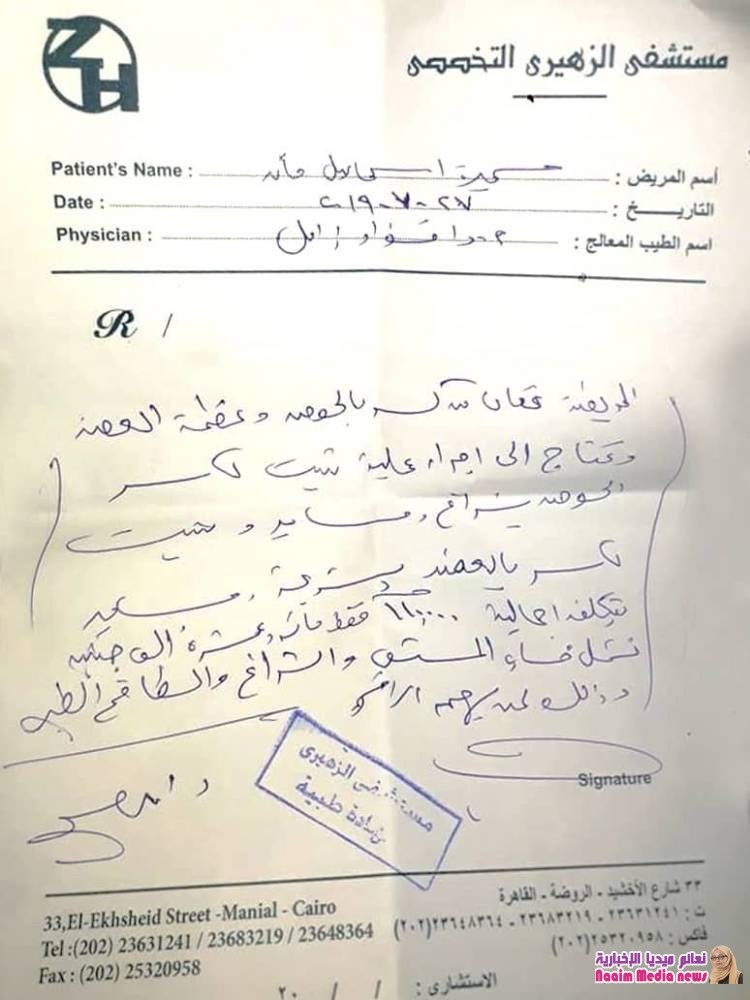 ZH
مستشفى الزهيرى التخصصى
Patient's Name : أسم المريض :
Date : ٢٠١٩-٧-٢٧ التاريـــخ :
Physician : اسم الطيب المعالج :
R /
المريضة تعانى من كسر بالحوض وعظمة العضد
وتحتاج الى اجراء عملية تثبيت كسر
الحوض بشرائح ومسامير وتثبيت
كسر بالعضد بشريحة ومسامير
بتكلفة اجمالية ١١٠,٠٠٠ فقط مائة وعشرة الف جنيه
تشمل حساب المستشفى والشرائح والطاقم الطبى
وذلك لمن يهمه الأمر
Signature
مستشفى الزهيرى
شهادة طبية
٣٣ شارع الأخشيد - الروضة - القاهرة
ت : ٢٣٦٣١٢٤١ - ٢٣٦٨٣٢١٩ - ٢٣٦٤٨٣٦٤(٢٠٢)
فاكس : ٢٥٣٢٠٩٥٨(٢٠٢)
33,El-Ekhsheid Street -Manial - Cairo
Tel :(202) 23631241 / 23683219 / 23648364
Fax : (202) 25320958
الاستشارى : / / ٢٠
نعائم ميديا الإخبارية
Naaim Media news